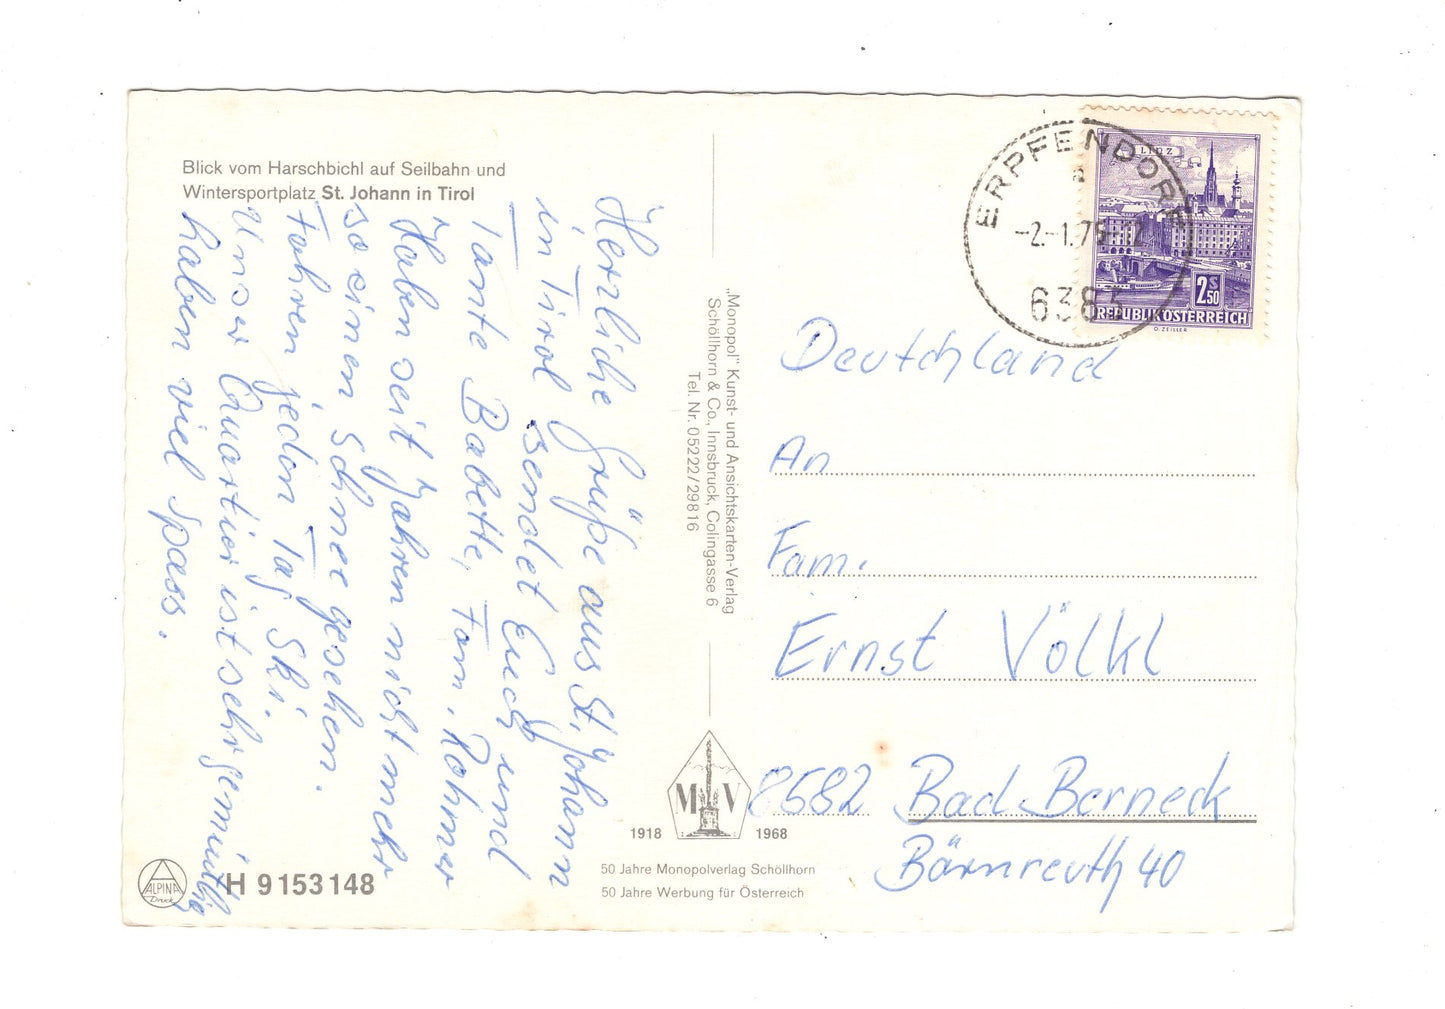 Blick vom Harschbichl auf Seilbahn und
Wintersportplatz St. Johann in Tirol
Herzliche Grüße aus St. Johann
in Tirol sendet Euch
Tante Babette, und
Fam. Rohmer
Haben seit Jahren nicht mehr
so einen Schnee gesehen.
Fahren jeden Tag Ski.
Unser Quartier ist sehr gemütlich
haben viel Spass.
„Monopol" Kunst- und Ansichtskarten-Verlag
Schöllhorn & Co., Innsbruck, Colingasse 6
Tel. Nr. 05222/29816
ERPFENDORF
-2.-1.76-12
6383
LINZ
2 S 50
REPUBLIK ÖSTERREICH
O. ZEILLER
Deutschland
An
Fam.
Ernst Völkl
8582 Bad Berneck
Bärnreuth 40
M V
1918 1968
50 Jahre Monopolverlag Schöllhorn
50 Jahre Werbung für Österreich
ALPINA
Druck
H 9153148